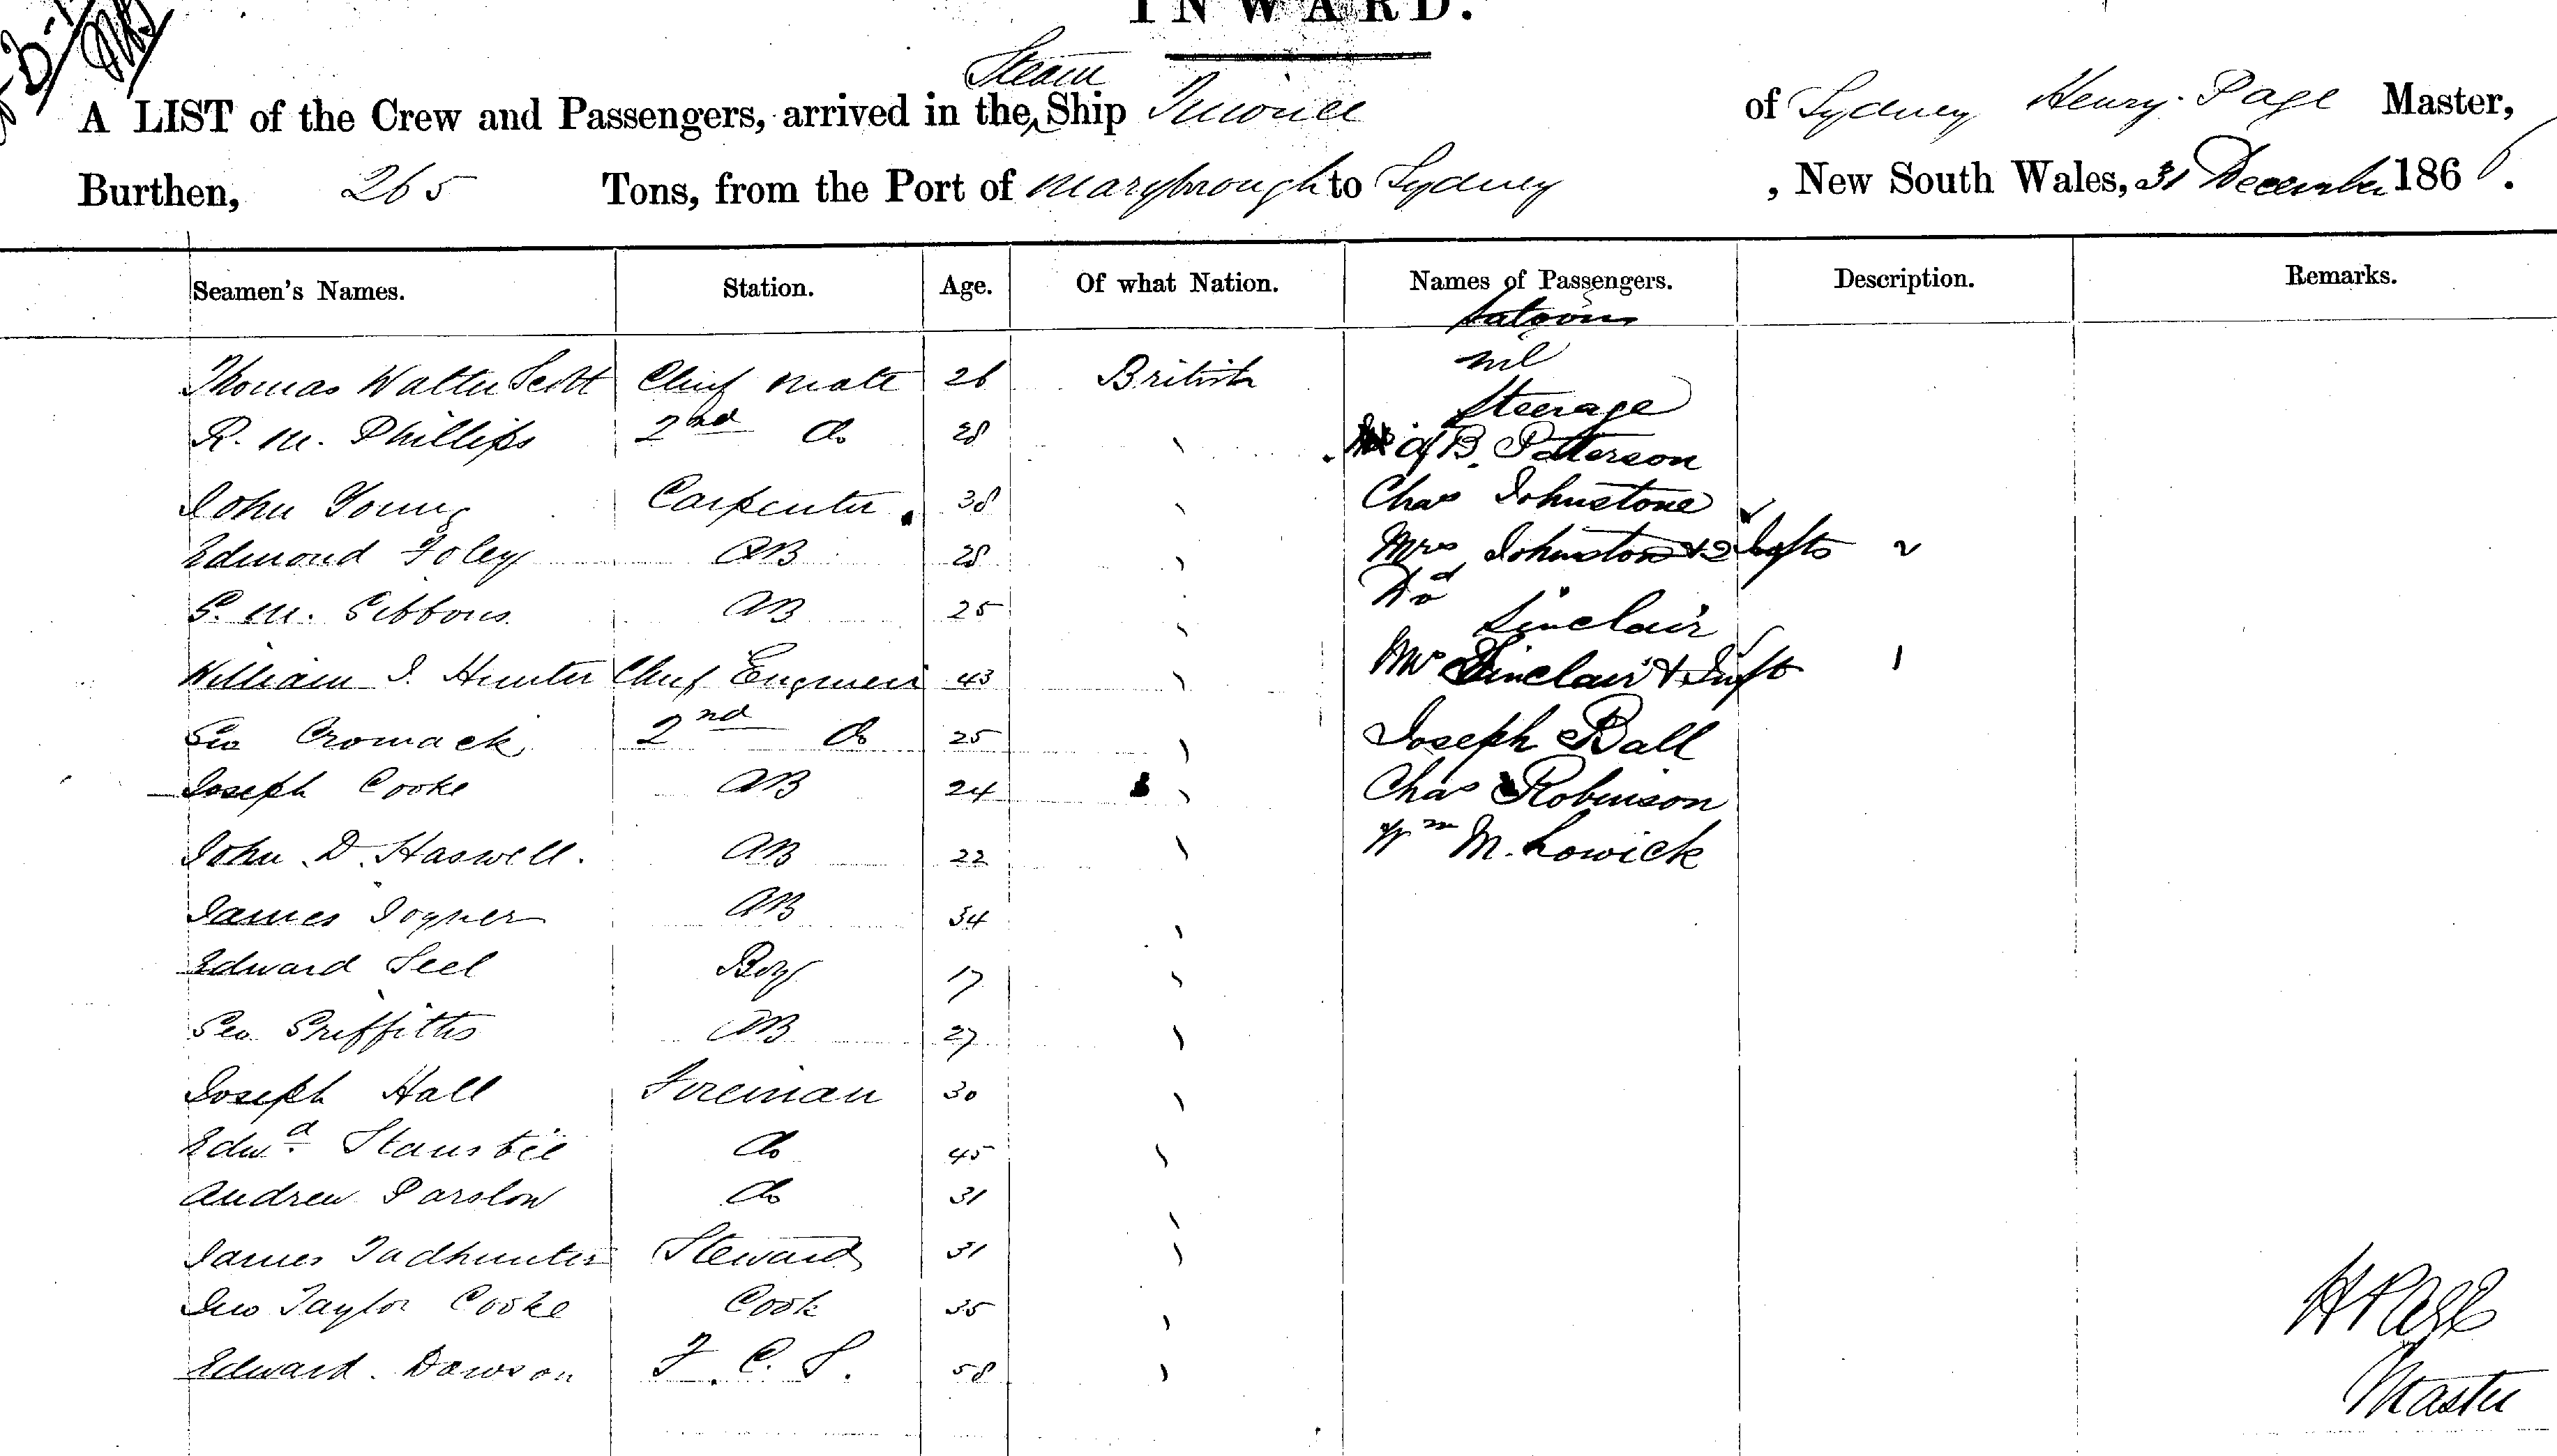 INWARD.
A LIST of the Crew and Passengers, arrived in the Steam Ship of Sydney Henry Page Master,
Burthen, 265 Tons, from the Port of Maryborough to Sydney, New South Wales, 31 December 1866.
Seamen's Names. Station. Age. Of what Nation. Names of Passengers. Description. Remarks.
Saloon
Thomas Walter Scott Chief Mate 26 British nil
Steerage
R. M. Phillips 2nd do 28 B. Patterson
John Young Carpenter 38 Chas Johnstone
Edmond Foley AB 28 Mrs Johnston & 2 Infts 2
G. M. Gibbons AB 25 Sinclair
William J. Hunter Chief Engineer 43 Mrs Sinclair & Inft 1
Geo Cromack 2nd do 25 Joseph Ball
Joseph Cooke AB 24 Chas Robinson
John D. Haswell. AB 22 Wm M. Lowick
James Joyner AB 34
Edward Seel Boy 17
Geo Griffiths AB 27
Joseph Hall Fireman 30
Edwd Stansbie do 45
Andrew Parslow do 31
James Tadhunter Steward 31
Jno Taylor Cooke Cook 35
Edward Dawson F. C. S. 58
H Page
Master